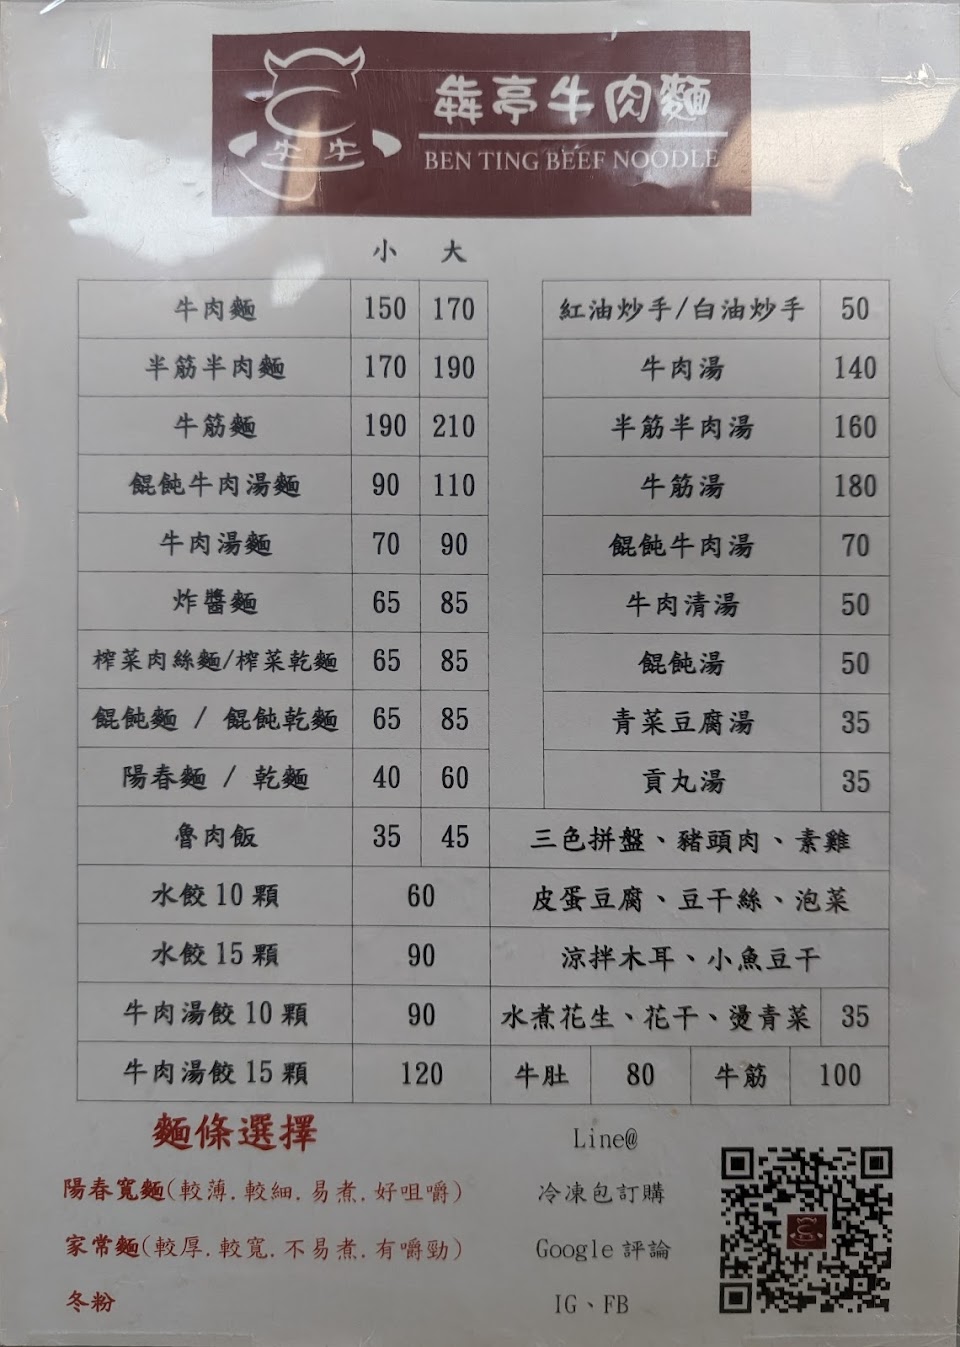 犇亭牛肉麵
BEN TING BEEF NOODLE
小 大
牛肉麵 150 170
半筋半肉麵 170 190
牛筋麵 190 210
餛飩牛肉湯麵 90 110
牛肉湯麵 70 90
炸醬麵 65 85
榨菜肉絲麵/榨菜乾麵 65 85
餛飩麵 / 餛飩乾麵 65 85
陽春麵 / 乾麵 40 60
魯肉飯 35 45
水餃10顆 60
水餃15顆 90
牛肉湯餃10顆 90
牛肉湯餃15顆 120
紅油炒手/白油炒手 50
牛肉湯 140
半筋半肉湯 160
牛筋湯 180
餛飩牛肉湯 70
牛肉清湯 50
餛飩湯 50
青菜豆腐湯 35
貢丸湯 35
三色拼盤、豬頭肉、素雞
皮蛋豆腐、豆干絲、泡菜
涼拌木耳、小魚豆干
水煮花生、花干、燙青菜 35
牛肚 80 牛筋 100
麵條選擇
陽春寬麵(較薄.較細.易煮.好咀嚼)
家常麵(較厚.較寬.不易煮.有嚼勁)
冬粉
Line@
冷凍包訂購
Google 評論
IG、FB